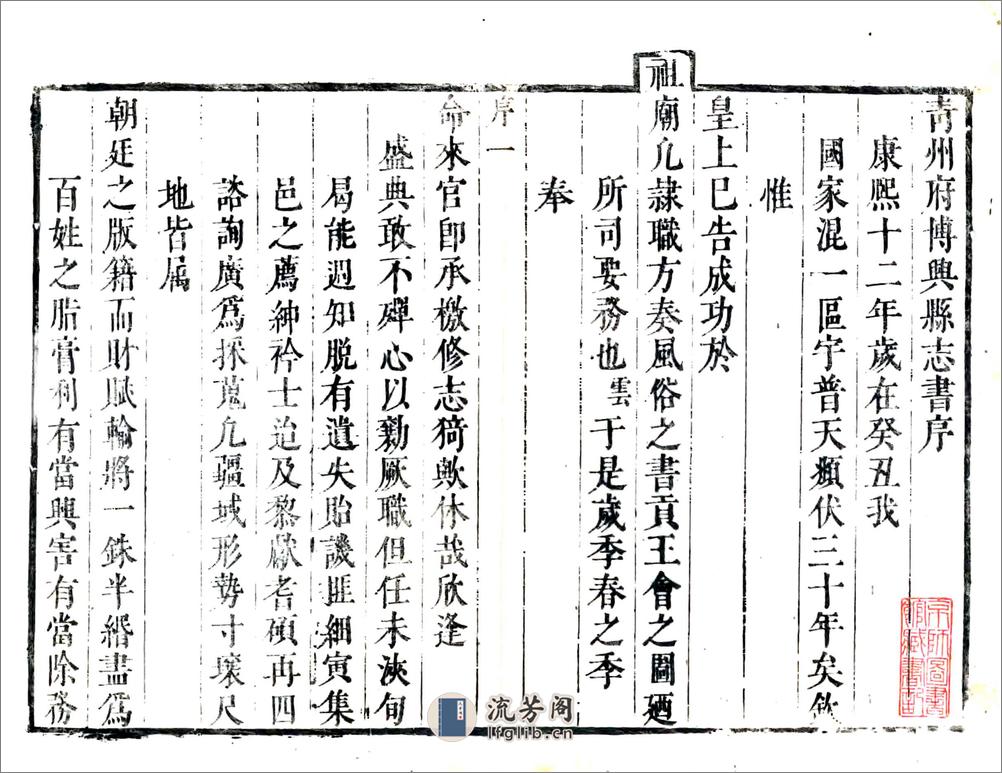 青州府博興縣志書序
康熙十二年歲在癸丑我
國家混一區宇普天頫伏三十年矣欽
惟
皇上已告成功於
祖廟凢隷職方奏風俗之書貢王會之圖廼
所司要務也雲于是歲季春之季
奉
序一
命來官卽承檄修志猗歟休哉欣逢
盛典敢不殫心以勷厥職但任未浹旬
曷能週知脱有遺失貽譏匪細寅集
邑之薦紳衿士迨及黎獻耆碩再四
諮詢廣爲採蒐凢疆域形勢寸壤尺
地皆属
朝廷之版籍而財賦輸將一銖半緡盡爲
百姓之脂膏利有當興害有當除務
京師圖書
館藏書記
流芳阁
lfglib.cn